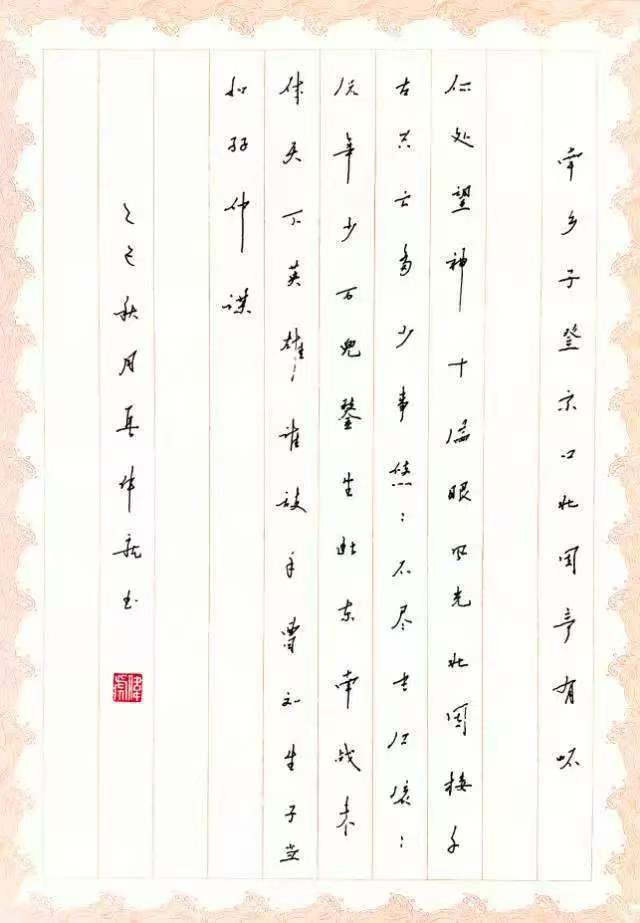 南乡子登京口北固亭有怀
何处望神州满眼风光北固楼千
古兴亡多少事悠悠不尽长江滚滚
流年少万兜鍪坐断东南战未
休天下英雄谁敌手曹刘生子当
如孙仲谋
乙巳秋月伟龙书